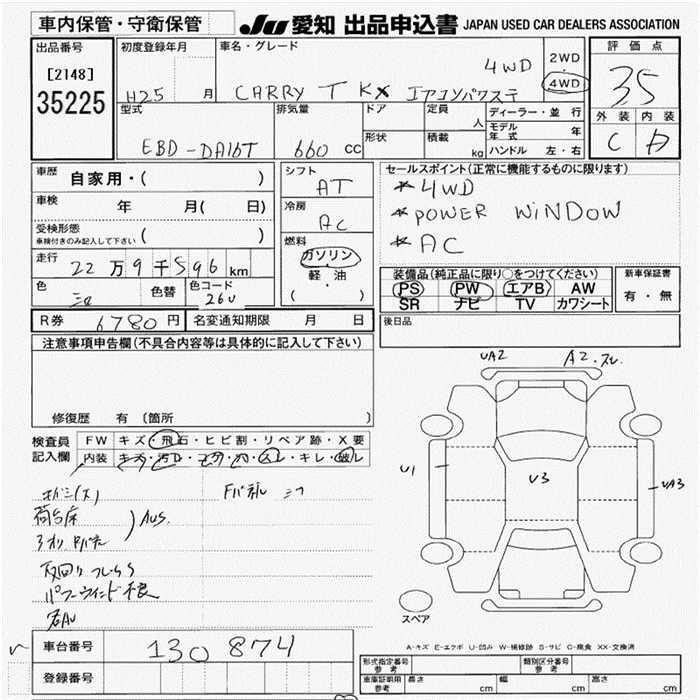 車内保管・守衛保管
JU 愛知 出品申込書 JAPAN USED CAR DEALERS ASSOCIATION
出品番号
[2148]
35225
初度登録年月
H25 月
車名・グレード
CARRY T KX エアコンパワステ 4WD
2WD
4WD
評価点
3.5
外装 内装
C D
型式
EBD-DA16T
排気量
660 CC
ドア
形状
定員 人
積載 kg
ディーラー・並行
モデル年式 年
ハンドル 左・右
車歴 自家用・( )
車検 年 月( 日)
受検形態
車検付きのみ記入して下さい ( )
走行 22万9千596km
色
色替
色コード
26U
シフト
AT
冷房
AC
燃料
ガソリン
軽・油
( )
セールスポイント(正常に機能するものに限ります)
*4WD
*POWER WINDOW
*AC
装備品(純正品に限り○をつけてください)
PS PW エアB AW
SR ナビ TV カワシート
新車保証書
有・無
R券 6780円 名変通知期限 月 日
後日品
注意事項申告欄(不具合内容等は具体的に記入して下さい)
修復歴 有 (箇所 )
検査員
記入欄
FW キズ・飛石・ヒビ割・リペア跡・X要
内装 キズ・汚レ・コゲ・穴・スレ・キレ・破レ
荷台床
AUS.
UA2
A2
U1
U3
UA3
スペア
A-キズ E-エクボ U-凹み W-補修跡 S-サビ C-腐食 XX-交換済
車台番号 130874
登録番号
形式指定番号
参考
類別区分番号
参考
車庫証明用
参考
長さ cm 幅 cm 高さ cm